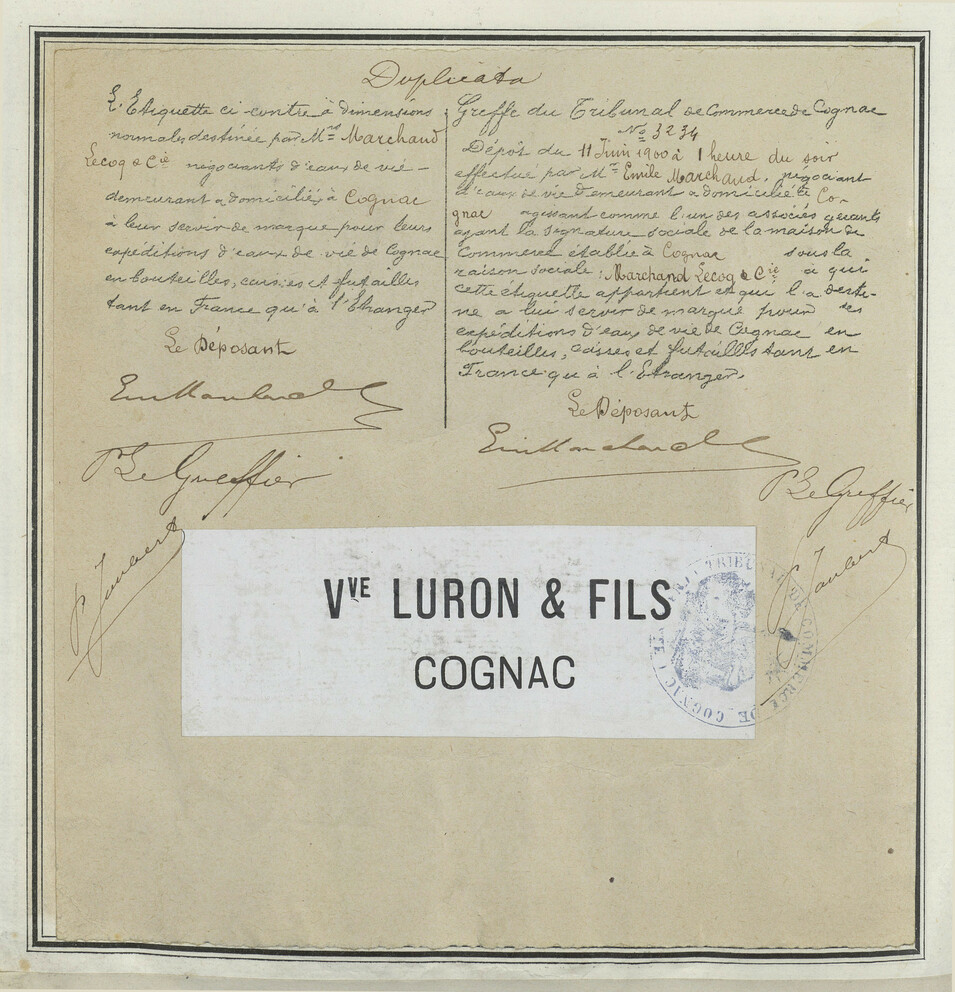 Duplicata
L'Etiquette ci-contre à dimensions
normales destinée par M^rs Marchand
Lecoq & Cie négociants d'eaux de vie -
demeurant & domiciliés à Cognac
à leur servir de marque pour leurs
expéditions d'eaux de vie de Cognac
en bouteilles, caisses et futailles
tant en France qu'à l'Etranger
Le Déposant
Em Marchand
P^r Le Greffier
P Joubert
Greffe du Tribunal de Commerce de Cognac
No 3234
Dépôt du 11 Juin 1900 à 1 heure du soir
effectué par M^r Emile Marchand, négociant
d'eaux de vie demeurant & domicilié à Co-
gnac agissant comme l'un des associés gérants
ayant la signature sociale de la maison de
Commerce établie à Cognac sous la
raison sociale : Marchand Lecoq & Cie à qui
cette étiquette appartient et qui l'a desti-
né a lui servir de marque pour ses
expéditions d'eaux de vie de Cognac en
bouteilles, caisses et futailles tant en
France qu'à l'Etranger.
Le Déposant
Em Marchand
P^r Le Greffier
P Joubert
Vve LURON & FILS
COGNAC
TRIBUNAL DE COMMERCE DE COGNAC